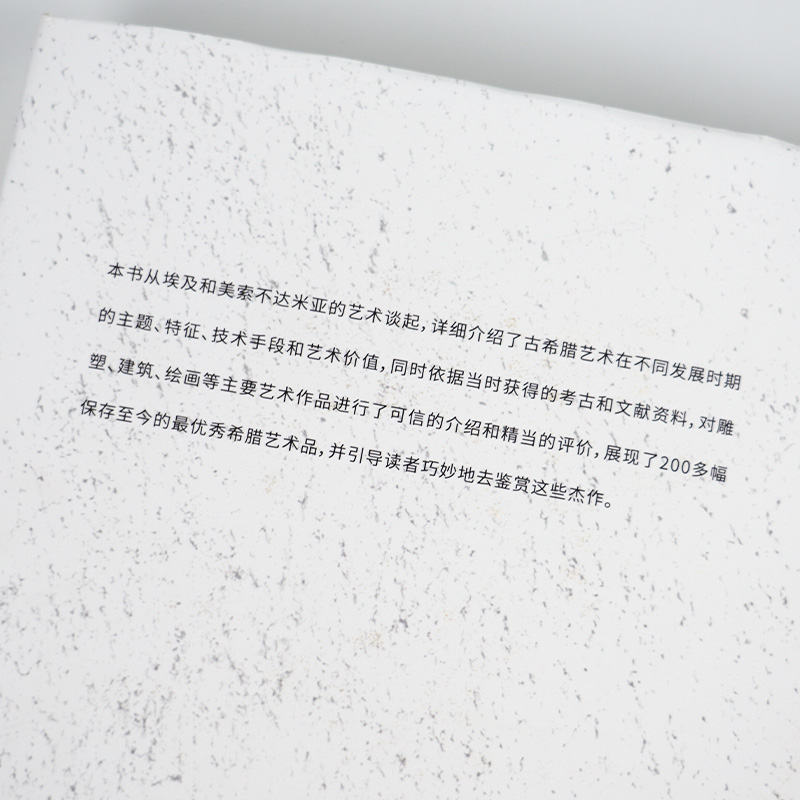 本书从埃及和美索不达米亚的艺术谈起，详细介绍了古希腊艺术在不同发展时期
的主题、特征、技术手段和艺术价值，同时依据当时获得的考古和文献资料，对雕
塑、建筑、绘画等主要艺术作品进行了可信的介绍和精当的评价，展现了200多幅
保存至今的最优秀希腊艺术品，并引导读者巧妙地去鉴赏这些杰作。